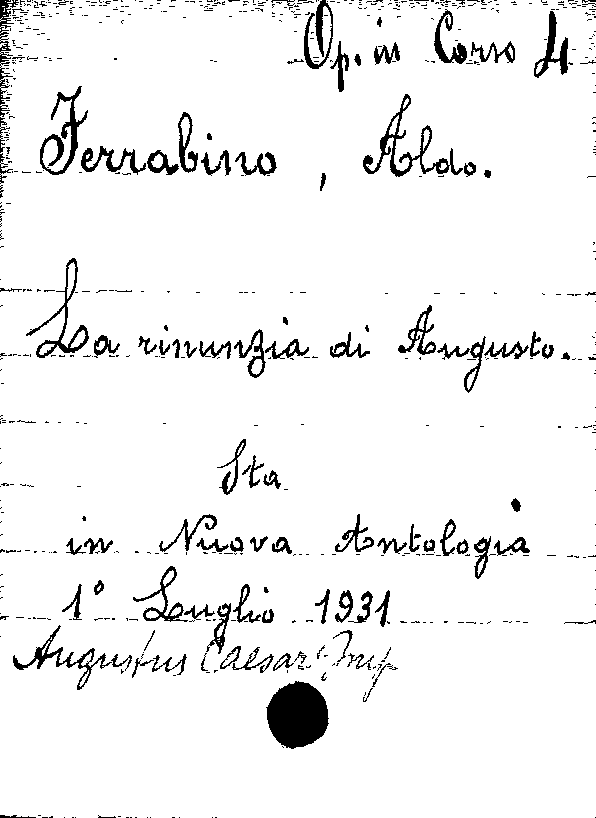 Op. in Corso 4
Ferrabino, Aldo.
La rinunzia di Augusto.
Sta
in Nuova Antologia
1° Luglio 1931
Augustus Caesar Imp